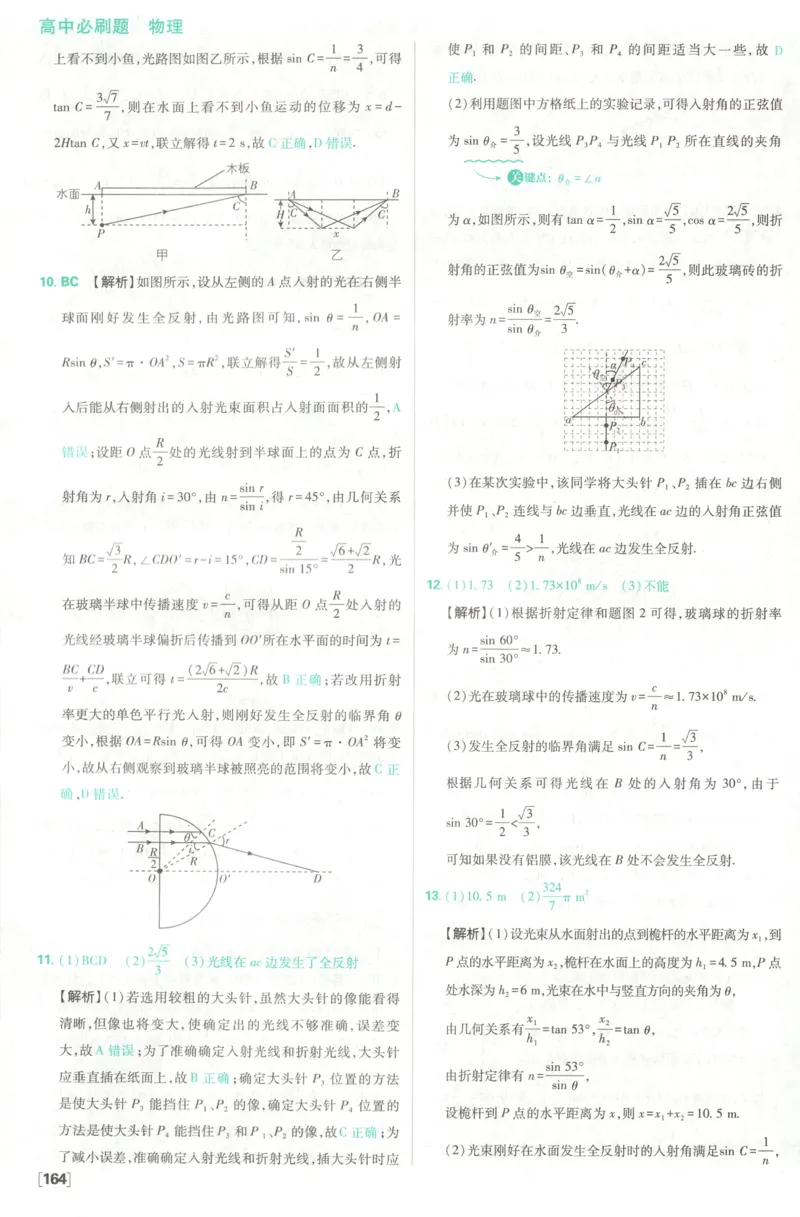 高中必刷题 物理
上看不到小鱼,光路图如图乙所示,根据 sin C=1/n=3/4,可得
tan C=3√7/7,则在水面上看不到小鱼运动的位移为 x=d-
2Htan C,又 x=vt,联立解得 t=2 s,故 C 正确,D 错误.
木板
水面 A B
h C
P
甲
A B
H C C
x
乙
10. BC 【解析】如图所示,设从左侧的 A 点入射的光在右侧半
球面刚好发生全反射,由光路图可知,sin θ=1/n,OA=
Rsin θ,S′=π·OA²,S=πR²,联立解得S′/S=1/2,故从左侧射
入后能从右侧射出的入射光束面积占入射面面积的1/2,A
错误;设距 O 点R/2处的光线射到半球面上的点为 C 点,折
射角为 r,入射角 i=30°,由 n=sin r/sin i,得 r=45°,由几何关系
知 BC=√3/2 R,∠CDO′=r-i=15°,CD=(R/2)/sin 15°=(√6+√2)/2 R,光
在玻璃半球中传播速度 v=c/n,可得从距 O 点R/2处入射的
光线经玻璃半球偏折后传播到 OO′所在水平面的时间为 t=
BC/v+CD/c,联立可得 t=(2√6+√2)R/2c,故 B 正确;若改用折射
率更大的单色平行光入射,则刚好发生全反射的临界角 θ
变小,根据 OA=Rsin θ,可得 OA 变小,即 S′=π·OA² 将变
小,故从右侧观察到玻璃半球被照亮的范围将变小,故 C 正
确,D 错误.
A θ C
B R/2 i r
R
O O′ D
11. (1)BCD (2)2√5/3 (3)光线在 ac 边发生了全反射
【解析】(1)若选用较粗的大头针,虽然大头针的像能看得
清晰,但像也将变大,使确定出的光线不够准确,误差变
大,故 A 错误;为了准确确定入射光线和折射光线,大头针
应垂直插在纸面上,故 B 正确;确定大头针 P₃ 位置的方法
是使大头针 P₃ 能挡住 P₁、P₂ 的像,确定大头针 P₄ 位置的
方法是使大头针 P₄ 能挡住 P₃ 和 P₁、P₂ 的像,故C 正确;为
了减小误差,准确确定入射光线和折射光线,插大头针时应
[164]
使 P₁ 和 P₂ 的间距、P₃ 和 P₄ 的间距适当大一些,故 D
正确.
(2)利用题图中方格纸上的实验记录,可得入射角的正弦值
为 sin θ介=3/5,设光线 P₃P₄ 与光线 P₁P₂ 所在直线的夹角
关键点:θ介=∠α
为 α,如图所示,则有 tan α=1/2,sin α=√5/5,cos α=2√5/5,则折
射角的正弦值为sin θ空=sin(θ介+α)=2√5/5,则此玻璃砖的折
射率为 n=sin θ空/sin θ介=2√5/3.
α P₄ c
θ空 P₃
θ介
a b
P₂
P₁
(3)在某次实验中,该同学将大头针 P₁、P₂ 插在 bc 边右侧
并使 P₁、P₂ 连线与 bc 边垂直,光线在 ac 边的入射角正弦值
为 sin θ′介=4/5>1/n,光线在 ac 边发生全反射.
12. (1)1.73 (2)1.73×10⁸ m/s (3)不能
【解析】(1)根据折射定律和题图 2 可得,玻璃球的折射率
为 n=sin 60°/sin 30°≈1.73.
(2)光在玻璃球中的传播速度为 v=c/n≈1.73×10⁸ m/s.
(3)发生全反射的临界角满足 sin C=1/n=√3/3,
根据几何关系可得光线在 B 处的入射角为 30°,由于
sin 30°=1/2<√3/3,
可知如果没有铝膜,该光线在 B 处不会发生全反射.
13. (1)10.5 m (2)324/7 π m²
【解析】(1)设光束从水面射出的点到桅杆的水平距离为 x₁,到
P 点的水平距离为 x₂,桅杆在水面上的高度为 h₁=4.5 m,P 点
处水深为 h₂=6 m,光束在水中与竖直方向的夹角为 θ,
由几何关系有x₁/h₁=tan 53°,x₂/h₂=tan θ,
由折射定律有 n=sin 53°/sin θ,
设桅杆到 P 点的水平距离为 x,则 x=x₁+x₂=10.5 m.
(2)光束刚好在水面发生全反射时的入射角满足sin C=1/n,